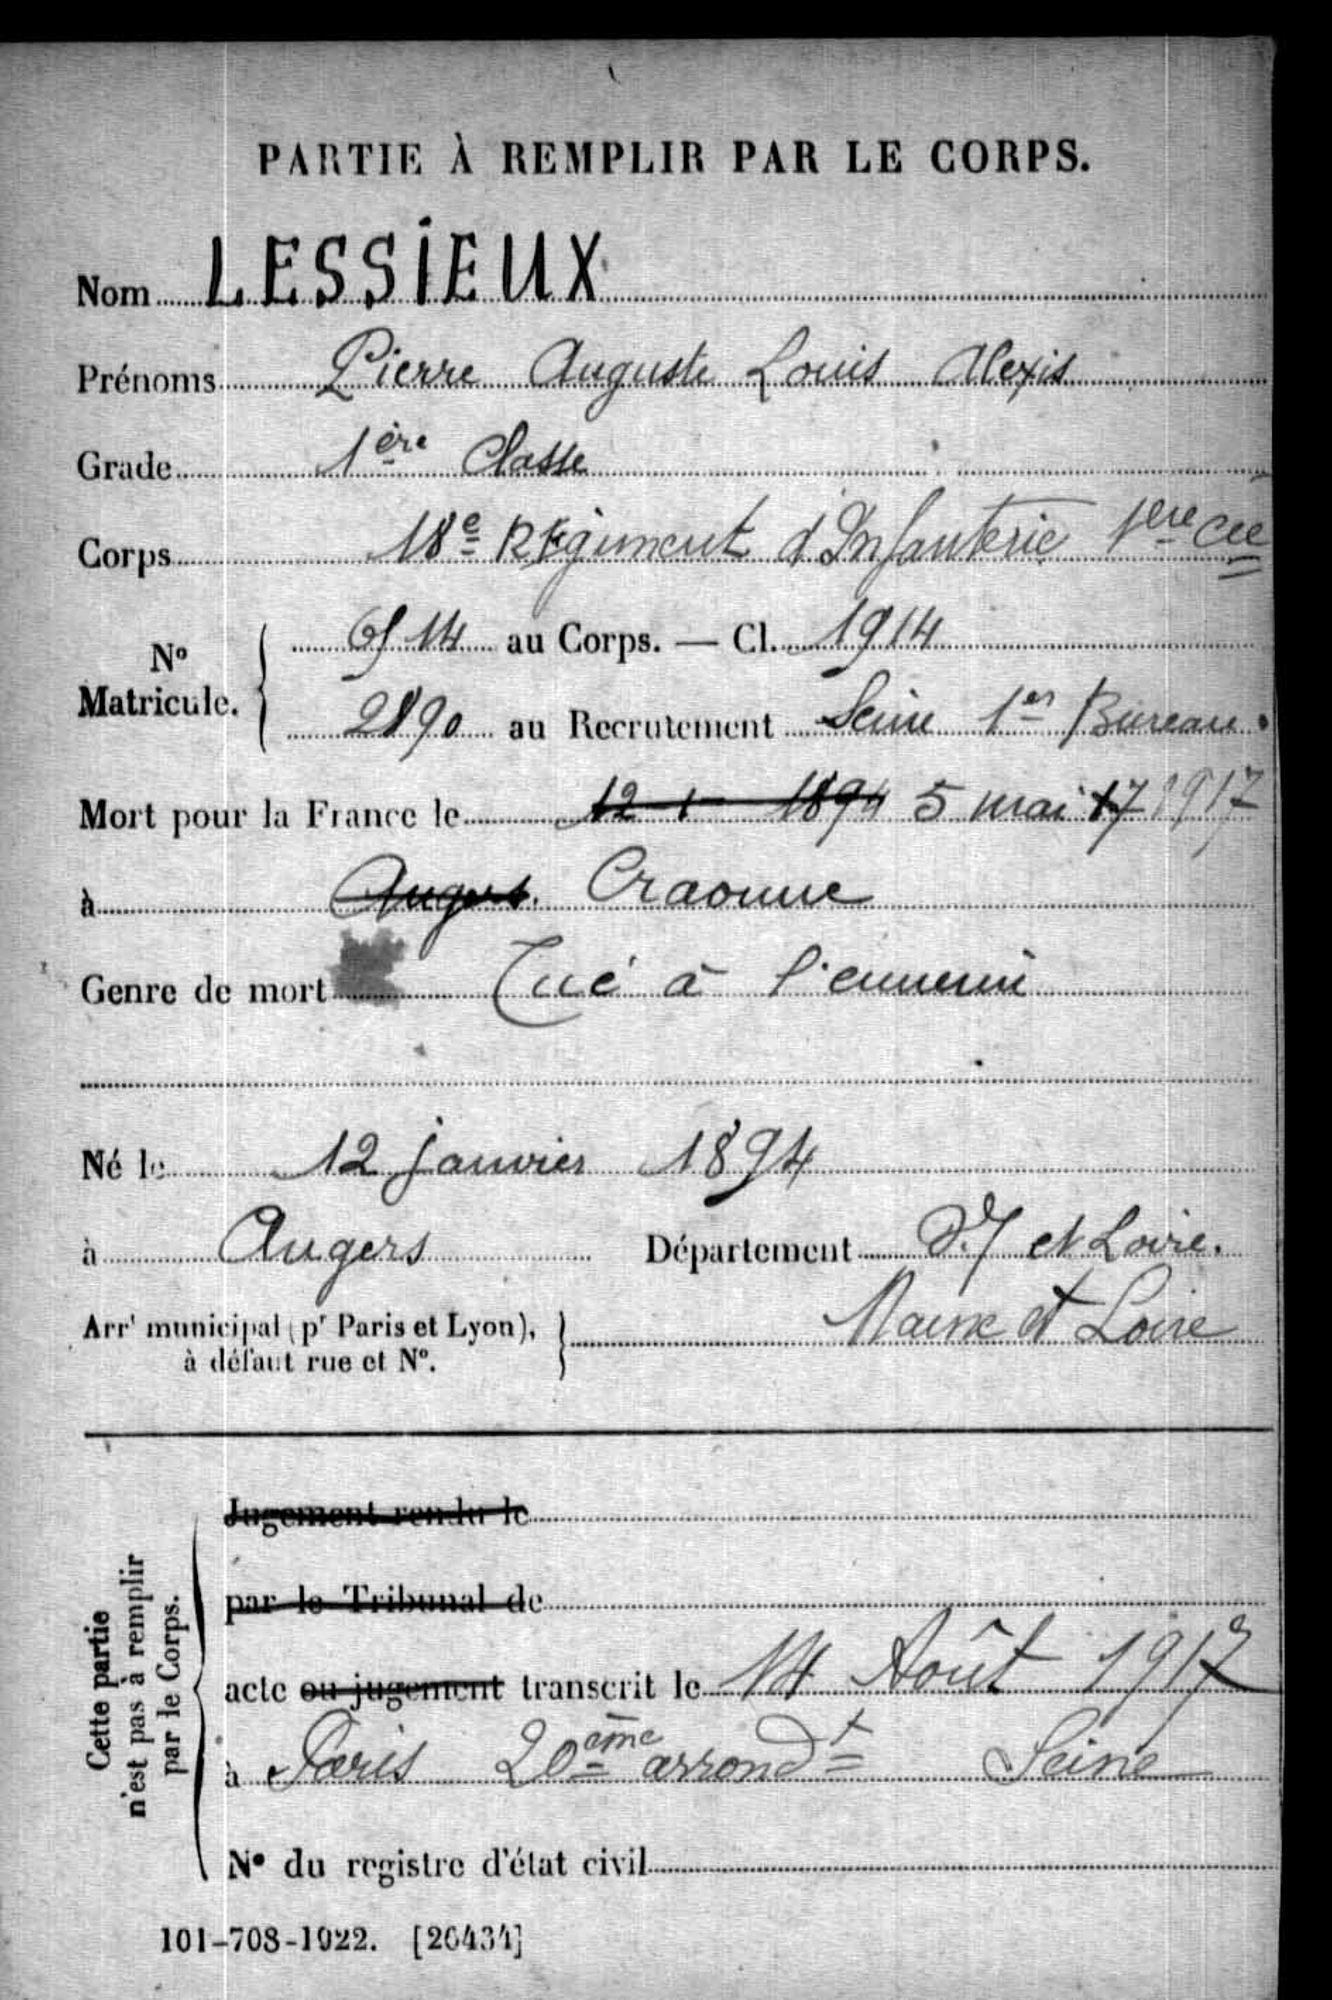 PARTIE À REMPLIR PAR LE CORPS.
Nom LESSIEUX
Prénoms Pierre Auguste Louis Alexis
Grade 1ère Classe
Corps 18e Régiment d'Infanterie 1ère Cie
No Matricule. 6514 au Corps. — Cl. 1914
2890 au Recrutement Seine 1er Bureau.
Mort pour la France le 12 1 1894 5 mai 17 1917
à Angers. Craonne
Genre de mort Tué à l'ennemi
Né le 12 janvier 1894
à Angers Département et Loire.
Arrt municipal (pr Paris et Lyon), à défaut rue et No. Maine et Loire
Cette partie n'est pas à remplir par le Corps.
Jugement rendu le
par le Tribunal de
acte ou jugement transcrit le 14 Août 1917
à Paris 20ème arrondt Seine
No du registre d'état civil
101-708-1922. [26434]